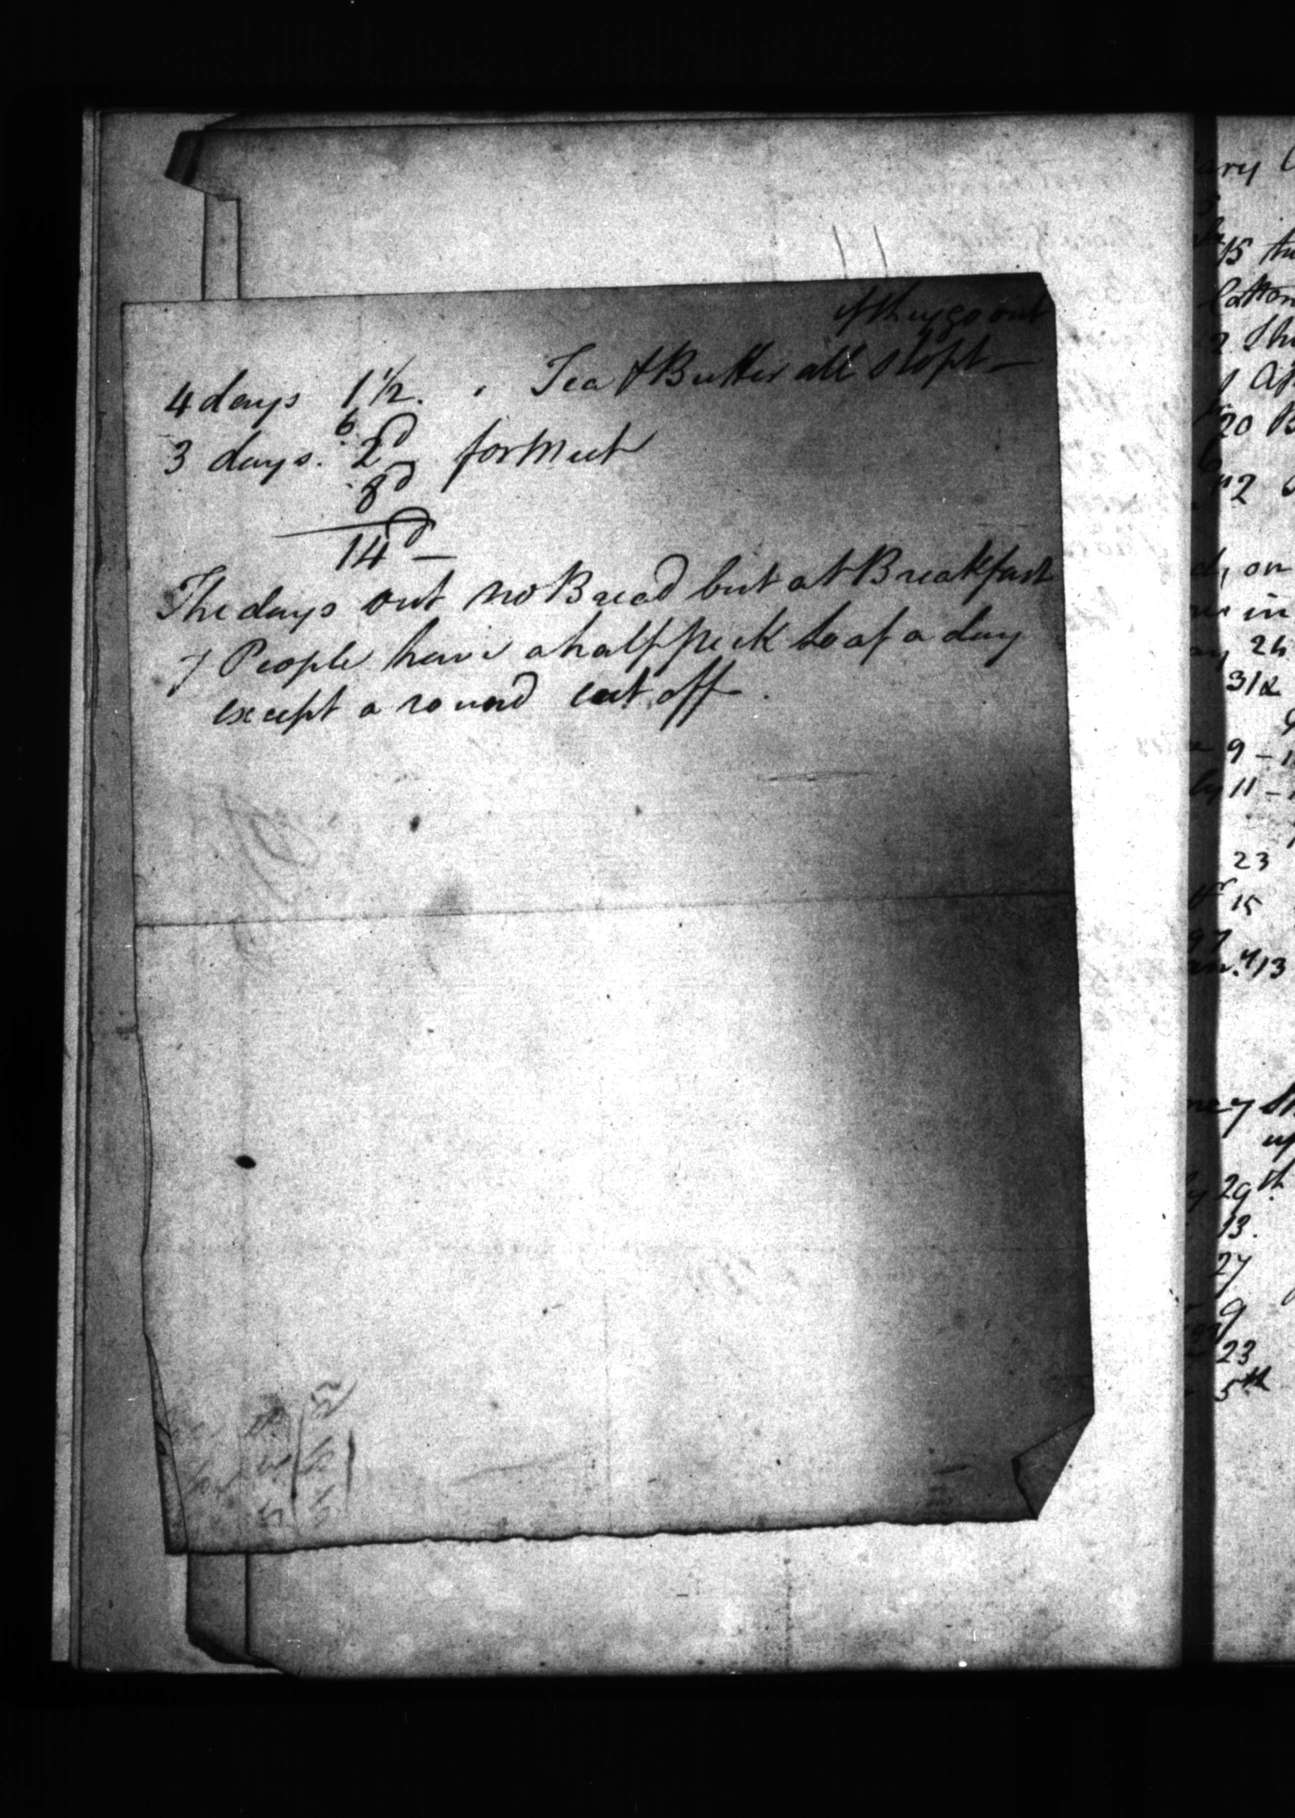 if they go out
4 days 1 1/2. . Tea & Butter all stopt —
6
3 days. 2d for Meet
8d
14d —
The days out no Bread but at Breakfast
7 People have a half peck Loaf a day
except a round cut off.
ary
3
15
Cotton
2 Sh
20 B
2
on
in
24
31
9 - 1
11 -
23
15
97
an.y 13
ney
up
29th.
13.
27
9
23
5th